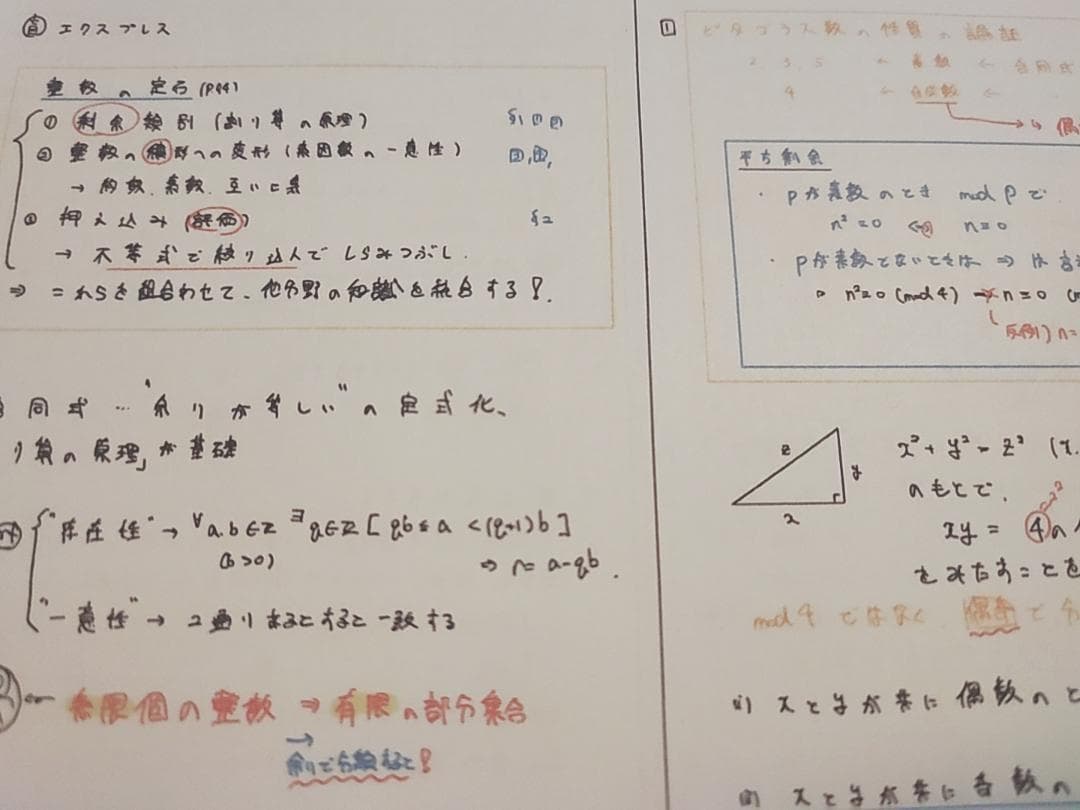 エクスプレス
整数の定石 (P94)
① 剰余類別 (割り算の原理)
② 整数の積形への変形 (素因数の一意性)
→ 約数、素数、互いに素
③ 押え込み (評価)
§2
→ 不等式で絞り込んでしらみつぶし.
⇒ これらを組合わせて、他分野の知識を統合する!.
合同式 … "余りが等しい" の定式化、
り算の原理」が基礎
"存在性" → ∀a.b∈Z ∃q∈Z [ qb ≦ a < (q+1)b ]
(b>0) ⇒ r = a-qb .
"一意性" → 2通りあるとすると一致する
無限個の整数 ⇒ 有限の部分集合
→
余りで分類すると!
1 ピタゴラス数の性質の論証
2 3, 5 ← 素数 ← 合同式
4 ← 合成数 ←
平方剰余
・ Pが素数のとき mod P で
n²≡0 ⇔ n≡0
・ Pが素数でないときは ⇒ は
n²≡0 (mod 4) n≡0
反例) n=
z y x
x² + y² = z²
のもとで.
xy = 4の
をみたすことを
mod 4 ではなく 偶奇で
i) xとyが共に偶数のと
ii) xとyが共に奇数の